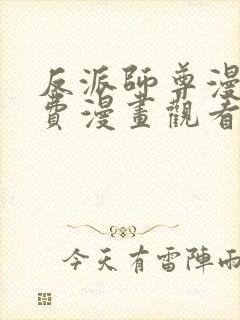 反派師尊漫
費漫畫觀看
今天有雷陣雨